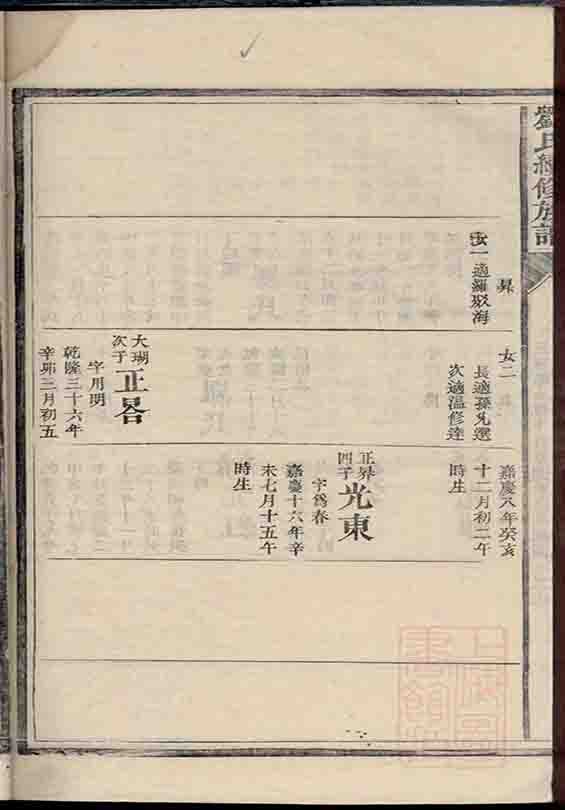 劉氏續修族譜
昇
女一適羅聚海
女二
長適孫允選
次適溫修達
大瑚
次子
正晷
字用明
乾隆三十六年
辛卯三月初五
嘉慶八年癸亥
十二月初二午
時生
正昇
四子
光東
字爲春
嘉慶十六年辛
未七月十五午
時生
上海圖
書館藏